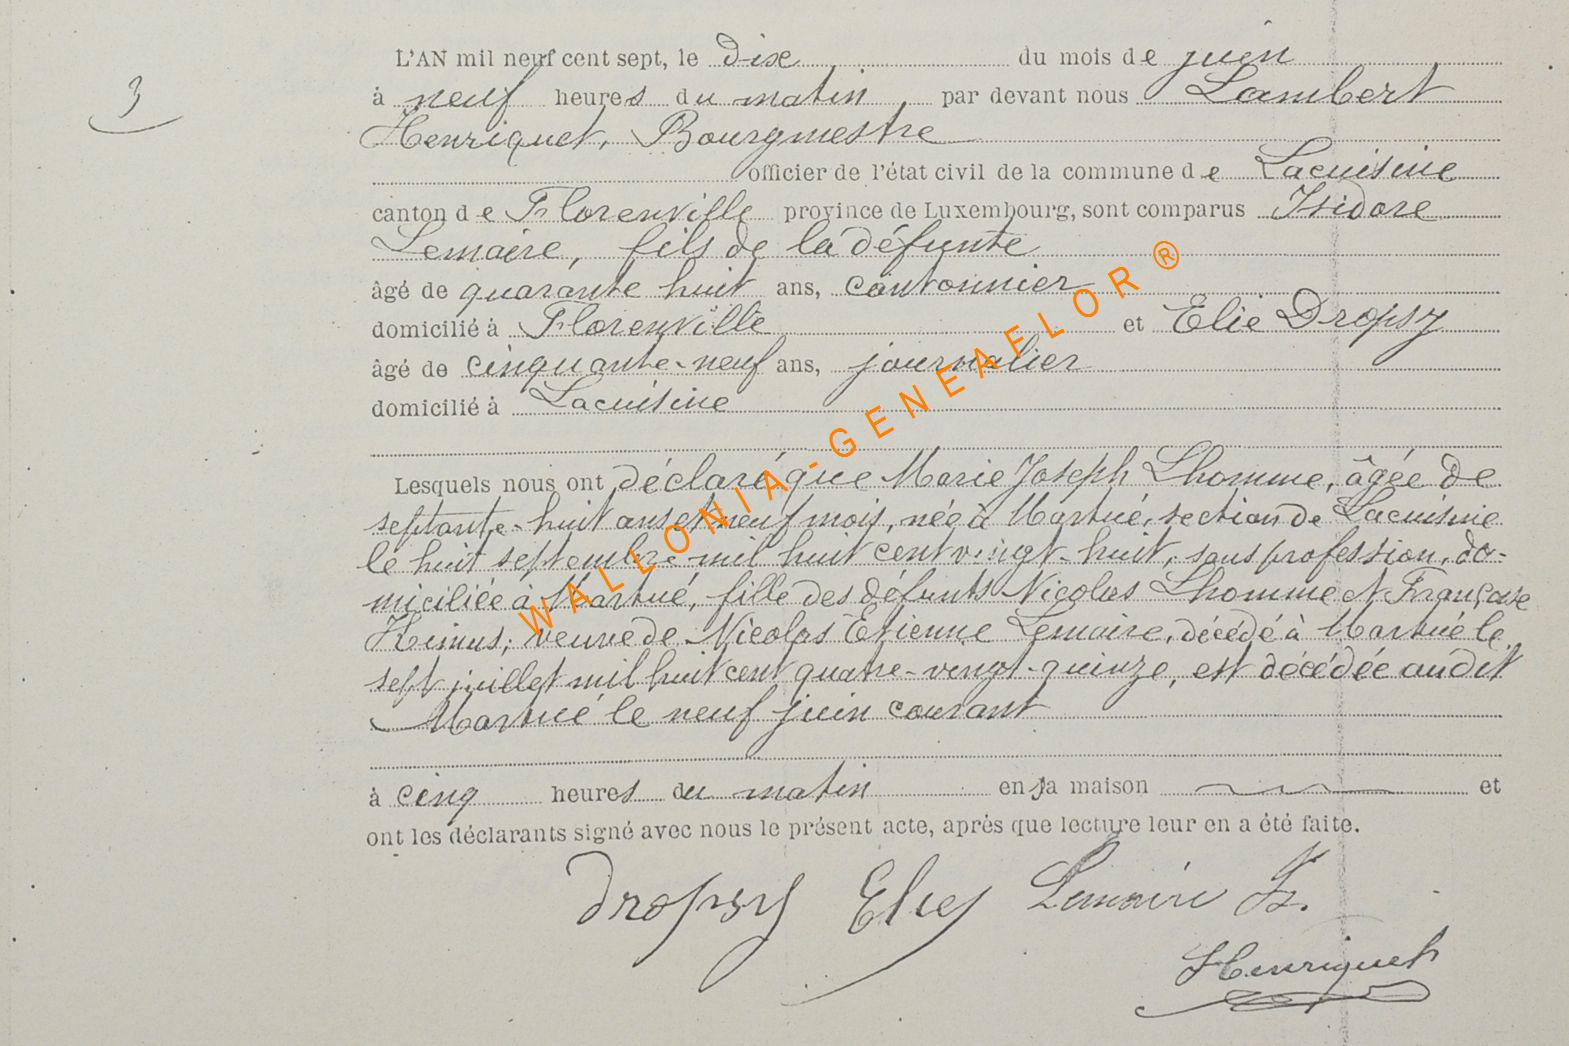 3
L'AN mil neuf cent sept, le dix du mois de juin
à neuf heures du matin, par devant nous Lambert
Henriquet, Bourgmestre
officier de l'état civil de la commune de Lacuisine
canton de Florenville province de Luxembourg, sont comparus Isidore
Lemaire, fils de la défunte
âgé de quarante huit ans, cantonnier
domicilié à Florenville et Elie Dropsy
âgé de cinquante-neuf ans, journalier
domicilié à Lacuisine
Lesquels nous ont déclaré que Marie Joseph Lhomme, âgée de
septante-huit ans et neuf mois, née à Martué, section de Lacuisine
le huit septembre mil huit cent vingt-huit, sans profession, do-
miciliée à Martué, fille des défunts Nicolas Lhomme et Françoise
veuve de Nicolas Etienne Lemaire, décédé à Martué le
sept juillet mil huit cent quatre-vingt-quinze, est décédée audit
Martué le neuf juin courant
à cinq heures du matin en sa maison et
ont les déclarants signé avec nous le présent acte, après que lecture leur en a été faite.
Dropsy Eliey Lemaire Is.
Henriquet
WALLONIA-GENEAFLOR ®